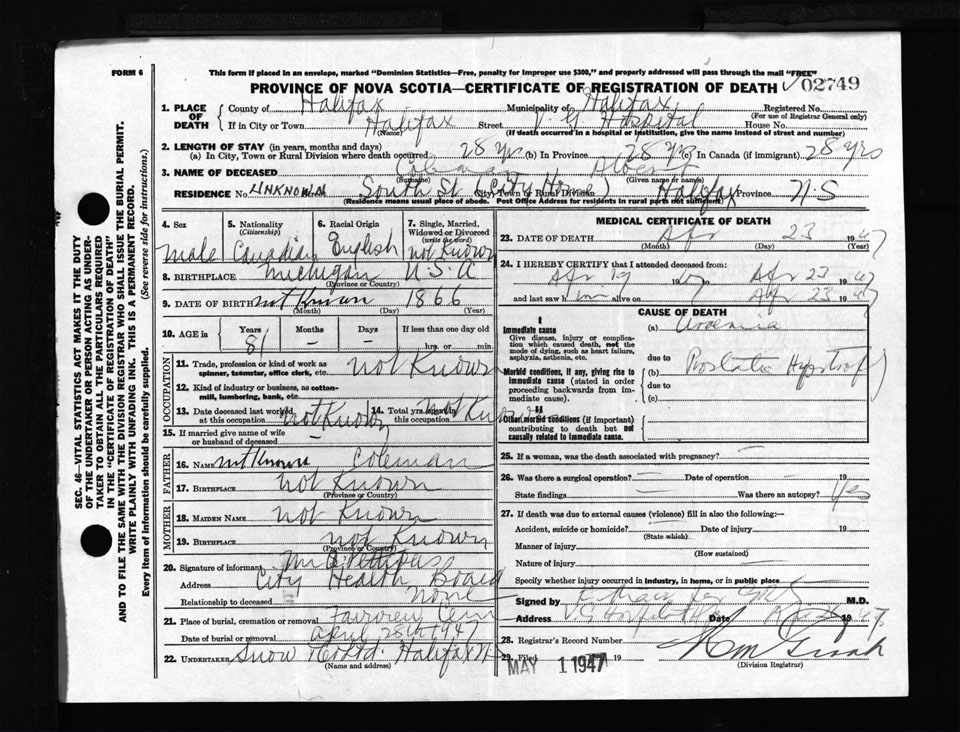 FORM 6
This form if placed in an envelope, marked "Dominion Statistics—Free, penalty for improper use $300," and properly addressed will pass through the mail "FREE"
PROVINCE OF NOVA SCOTIA—CERTIFICATE OF REGISTRATION OF DEATH 02749
1. PLACE OF DEATH { County of Halifax Municipality of Halifax Registered No.
(For use of Registrar General only)
If in City or Town Halifax Street V. G Hospital House No.
(If death occurred in a hospital or institution, give the name instead of street and number)
2. LENGTH OF STAY (in years, months and days)
(a) In City, Town or Rural Division where death occurred 28 yrs (b) In Province 28 yrs (c) In Canada (if immigrant) 28 yrs
3. NAME OF DECEASED Coleman Albert
(Surname) (Given name or names)
RESIDENCE No. UNKNOWN South St (City Home) City, Town or Rural Division Halifax Province N.S
(Residence means usual place of abode. Post Office Address for residents in rural parts not sufficient)
4. Sex male
5. Nationality (Citizenship) Canadian
6. Racial Origin English
7. Single, Married, Widowed or Divorced (write the word) not Known
8. BIRTHPLACE Michigan U.S.A
(Province or Country)
9. DATE OF BIRTH not Known 1866
(Month) (Day) (Year)
10. AGE in { Years 81 Months – Days – If less than one day old
hrs. or min.
OCCUPATION
11. Trade, profession or kind of work as spinner, teamster, office clerk, etc. not Known
12. Kind of industry or business, as cotton-mill, lumbering, bank, etc.
13. Date deceased last worked at this occupation not Known
14. Total yrs. spent in this occupation not Known
15. If married give name of wife or husband of deceased –
FATHER
16. NAME not Known Coleman
17. BIRTHPLACE not Known
(Province or Country)
MOTHER
18. MAIDEN NAME not Known
19. BIRTHPLACE not Known
(Province or Country)
20. Signature of informant
Address City Health Board
Relationship to deceased none
21. Place of burial, cremation or removal Fairview Cem
Date of burial or removal April 25th 1947
22. UNDERTAKER Snow & Co Ltd. Halifax N.S
(Name and address)
MEDICAL CERTIFICATE OF DEATH
23. DATE OF DEATH Apr 23 1947
(Month) (Day) (Year)
24. I HEREBY CERTIFY that I attended deceased from:
Apr 19 1947 Apr 23 1947
and last saw him alive on Apr 23 1947
CAUSE OF DEATH
I
Immediate cause
Give disease, injury or complication which caused death, not the mode of dying, such as heart failure, asphyxia, asthenia, etc.
(a) Uraemia
due to
Morbid conditions, if any, giving rise to immediate cause (stated in order proceeding backwards from immediate cause).
(b) Prostatic Hypertrophy
due to
(c)
II
Other morbid conditions (if important) contributing to death but not causally related to immediate cause.
25. If a woman, was the death associated with pregnancy? –
26. Was there a surgical operation? – Date of operation – 19
State findings Was there an autopsy? Yes
27. If death was due to external causes (violence) fill in also the following:—
Accident, suicide or homicide? Date of injury 19
(State which)
Manner of injury
(How sustained)
Nature of injury
Specify whether injury occurred in industry, in home, or in public place
Signed by M.D.
Address V.G. Hospital Date 1947
28. Registrar's Record Number
29. Filed MAY 1 1947 19
(Division Registrar)
SEC. 46—VITAL STATISTICS ACT MAKES IT THE DUTY OF THE UNDERTAKER OR PERSON ACTING AS UNDERTAKER TO OBTAIN ALL THE PARTICULARS REQUIRED IN THE "CERTIFICATE OF REGISTRATION OF DEATH" AND TO FILE THE SAME WITH THE DIVISION REGISTRAR WHO SHALL ISSUE THE BURIAL PERMIT.
WRITE PLAINLY WITH UNFADING INK. THIS IS A PERMANENT RECORD.
Every item of information should be carefully supplied. (See reverse side for instructions.)